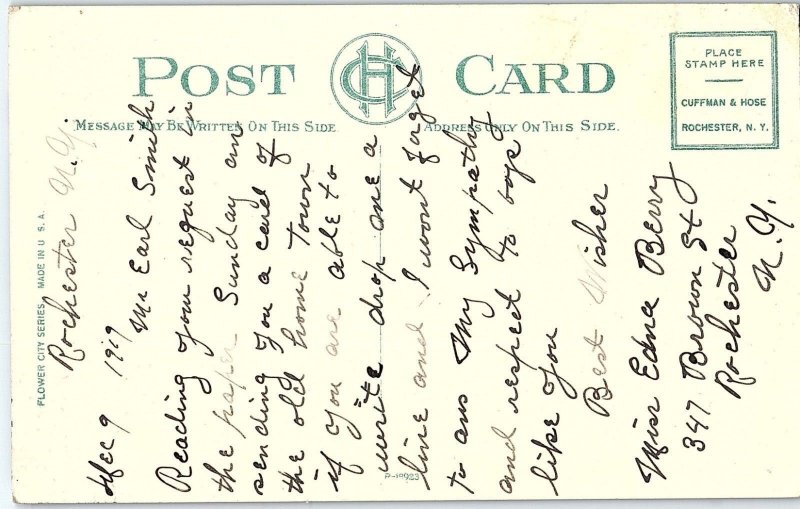 POST CARD
CHC
MESSAGE MAY BE WRITTEN ON THIS SIDE
ADDRESS ONLY ON THIS SIDE.
PLACE
STAMP HERE
CUFFMAN & HOSE
ROCHESTER, N.Y.
FLOWER CITY SERIES. MADE IN U.S.A.
Rochester N.Y.
Dec 9 1919
Mr Earl Smith
Reading your request in
the paper Sunday am
sending you a card of
the old home Town
if you are able to
write drop me a
line and I wont forget
to ans My Sympathy
and respect to boys
like you
Best Wisher
Miss Edna Berry
347 Brown St
Rochester
N.Y.